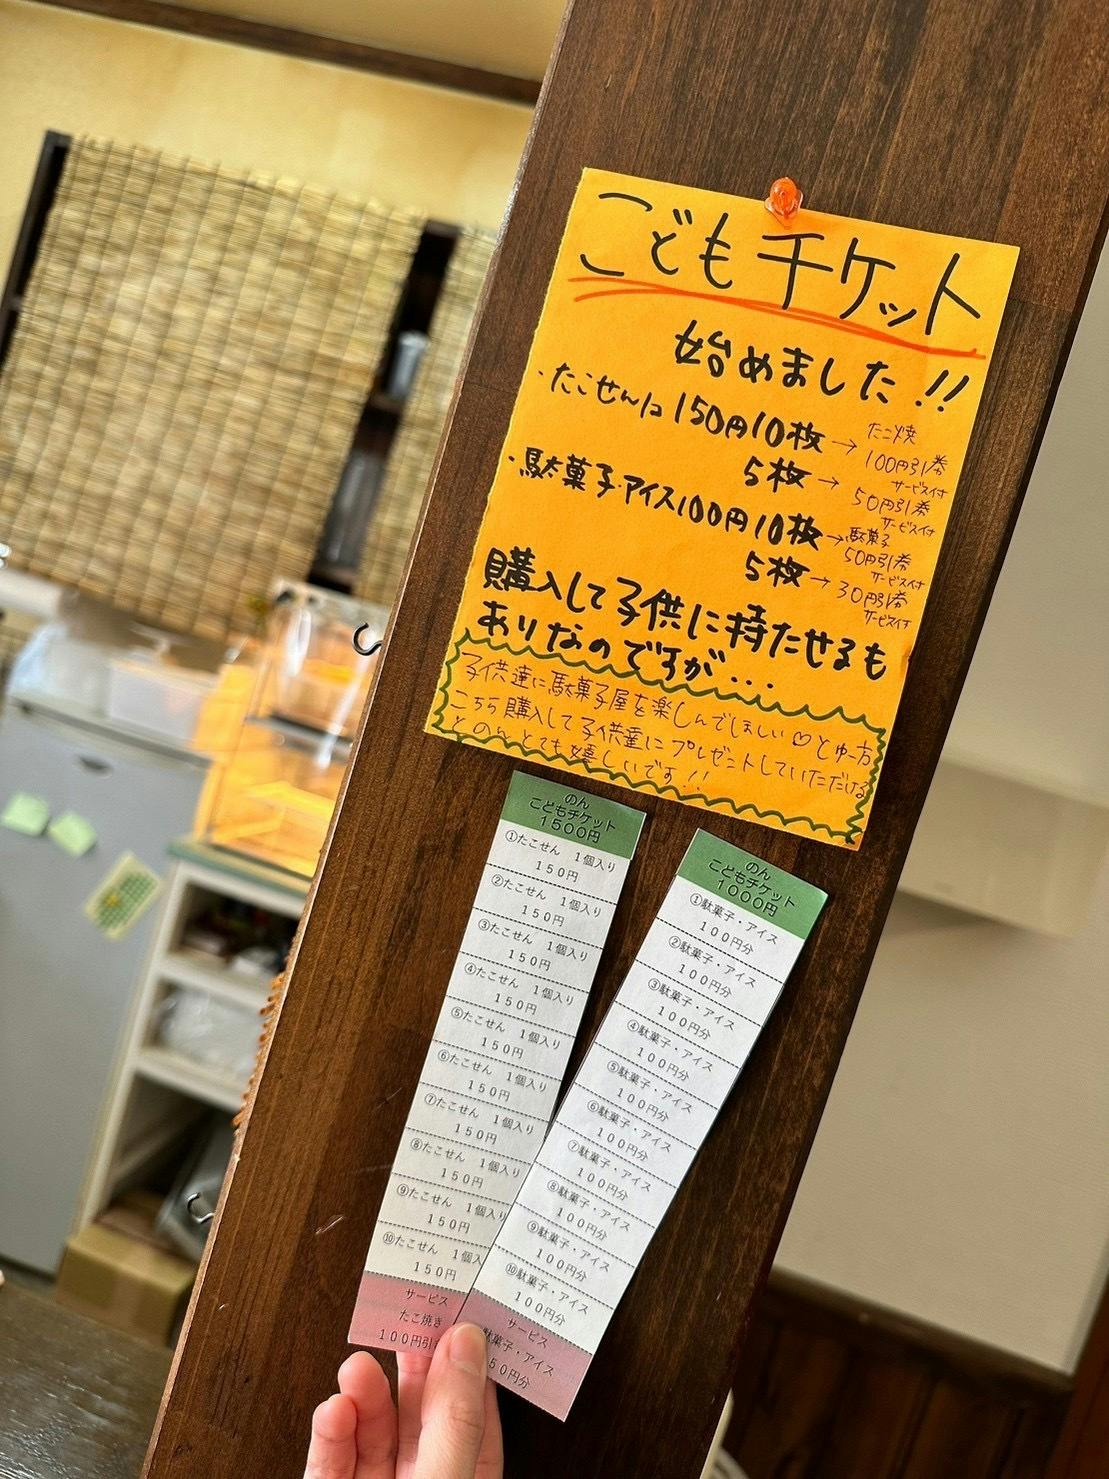 こどもチケット
始めました!!
・たこせん1コ150円10枚→たこ焼
100円引券
サービス付
5枚→50円引券
サービス付
・駄菓子・アイス100円10枚→駄菓子
50円引券
サービス付
5枚→30円引券
サービス付
購入して子供に持たせるも
ありなのですが...
子供達に駄菓子屋を楽しんでほしい♡とゆー方
こちら購入して子供達にプレゼントしていただける
とのんとても嬉しいです!!
のん
こどもチケット
1500円
①たこせん 1個入り
150円
②たこせん 1個入り
150円
③たこせん 1個入り
150円
④たこせん 1個入り
150円
⑤たこせん 1個入り
150円
⑥たこせん 1個入り
150円
⑦たこせん 1個入り
150円
⑧たこせん 1個入り
150円
⑨たこせん 1個入り
150円
⑩たこせん 1個入
150円
サービス
たこ焼き
100円引
のん
こどもチケット
1000円
①駄菓子・アイス
100円分
②駄菓子・アイス
100円分
③駄菓子・アイス
100円分
④駄菓子・アイス
100円分
⑤駄菓子・アイス
100円分
⑥駄菓子・アイス
100円分
⑦駄菓子・アイス
100円分
⑧駄菓子・アイス
100円分
⑨駄菓子・アイス
100円分
⑩駄菓子・アイス
100円分
サービス
駄菓子・アイス
50円分